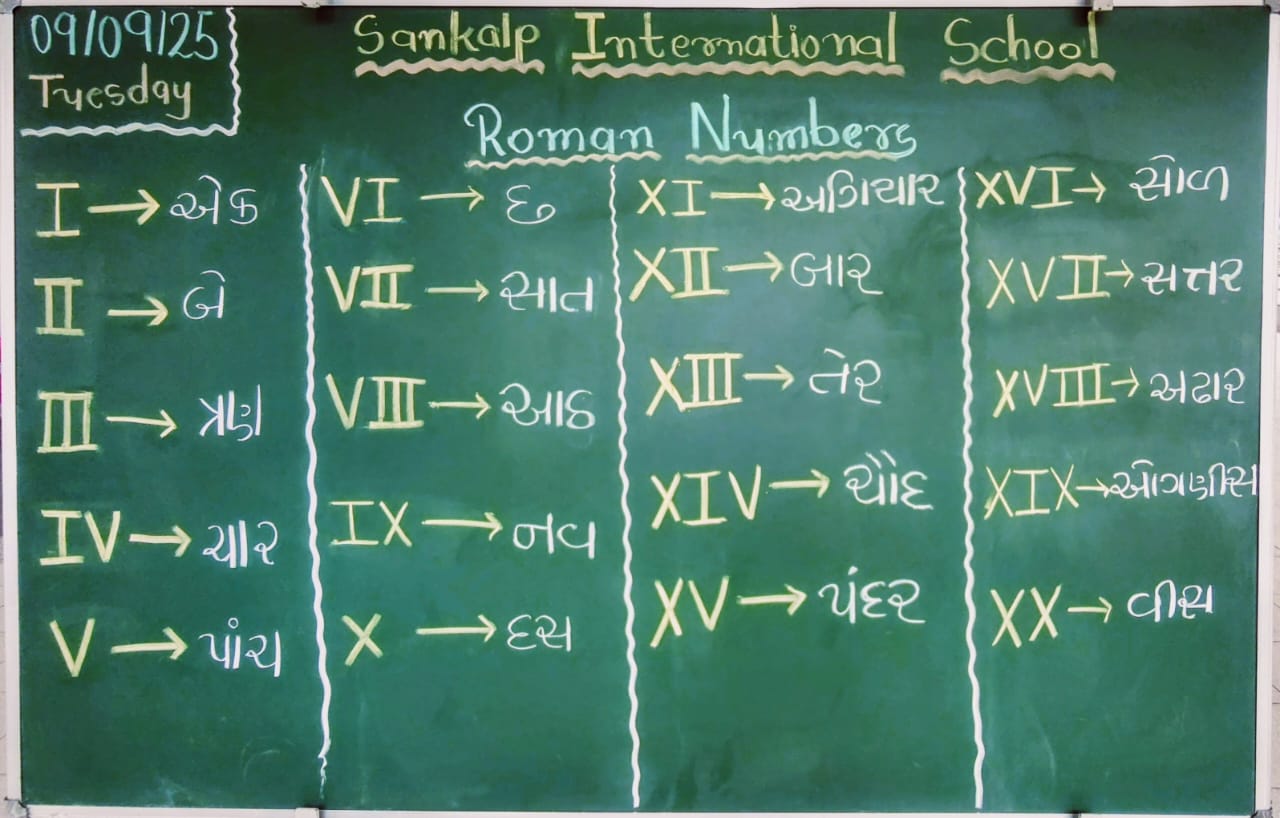 09/09/25
Tuesday
Sankalp International School
Roman Numbers
I → એક
II → બે
III → ત્રણ
IV → ચાર
V → પાંચ
VI → છ
VII → સાત
VIII → આઠ
IX → નવ
X → દસ
XI → અગિયાર
XII → બાર
XIII → તેર
XIV → ચૌદ
XV → પંદર
XVI → સોળ
XVII → સત્તર
XVIII → અઢાર
XIX → ઓગણીસ
XX → વીસ